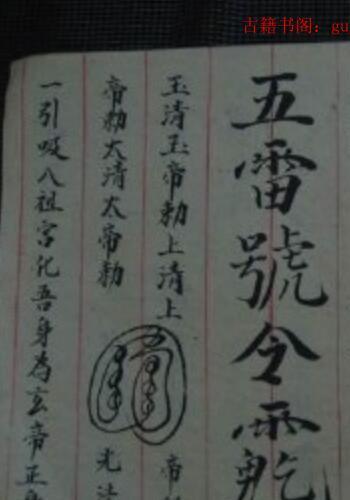 古籍书阁：gu
五雷號令
玉清玉帝勅上清上
帝勅太清太帝勅
帝
光
一引吸八祖宮化吾身為玄帝正